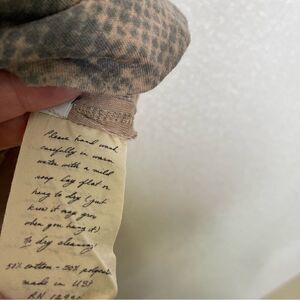 Please hand wash
carefully in warm
water with a mild
soap lay flat or
hang to dry (just
know it may grow
when you hang it)
No dry cleaning!
50% cotton - 50%
made in USA
RN